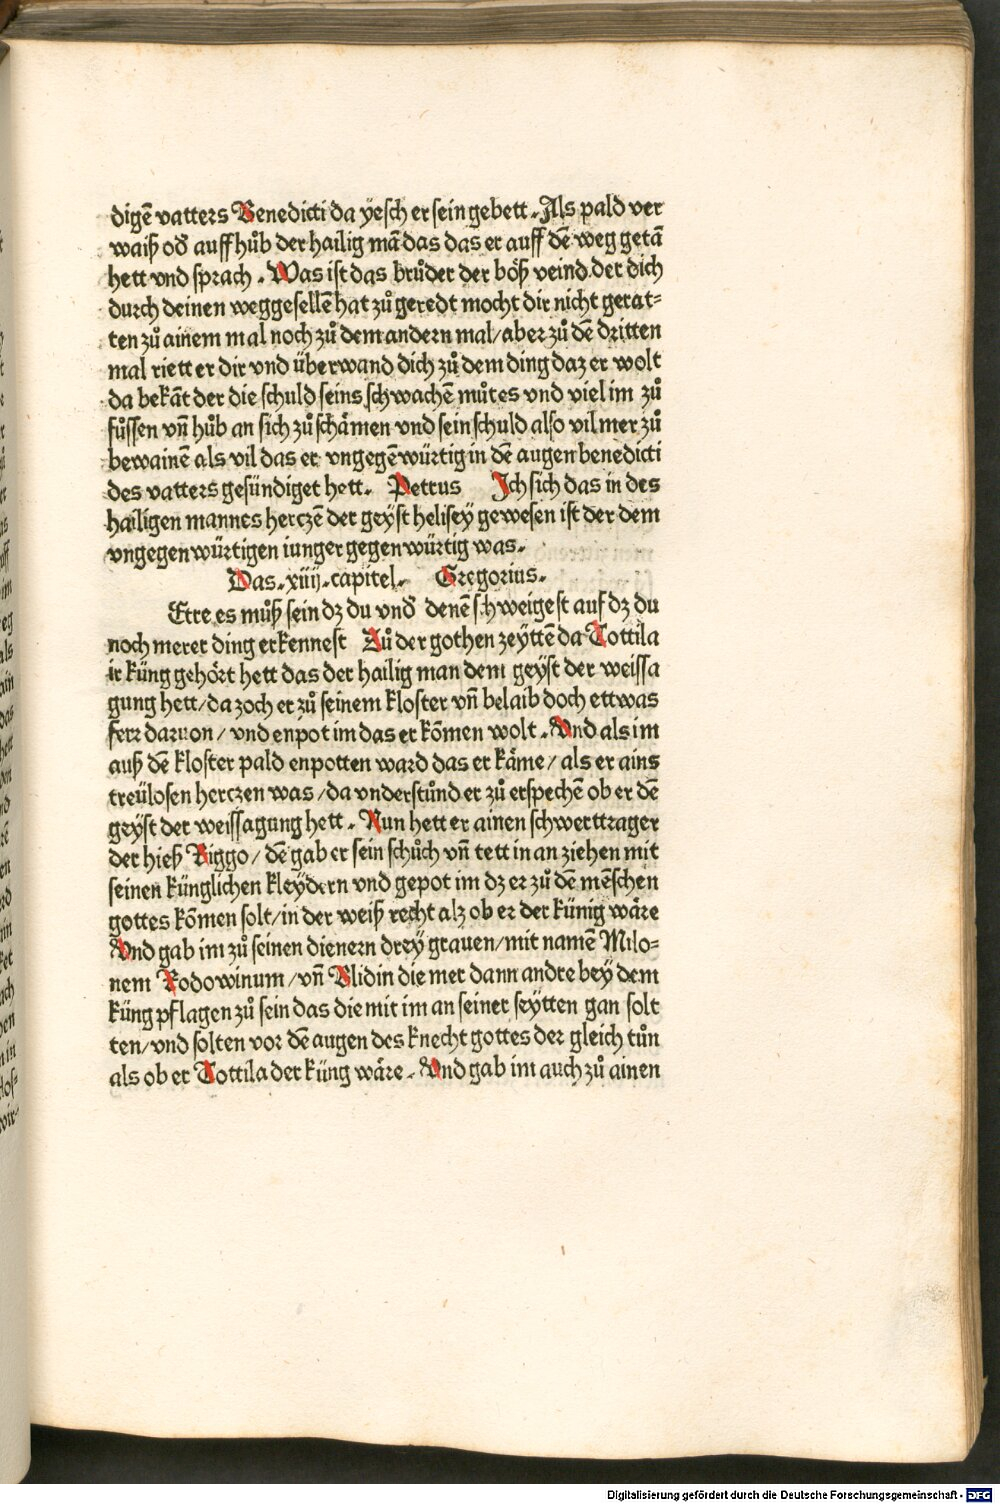 digē vatters Benedicti da yesch er sein gebett. Als pald ver
waiß od̄ auff hůb der hailig mā das das er auff dē weg getā
hett vnd sprach. Was ist das brůder der böß veind der dich
durch deinen weggesellē hat zů geredt mocht dir nicht gerat-
ten zů ainem mal noch zů dem andern mal/aber zů dē dritten
mal riett er dir vnd überwand dich zů dem ding daz er wolt
da bekāt der die schuld seins schwachē můtes vnd viel im zů
fůssen vn̄ hůb an sich zů schämen vnd sein schuld also vil mer zů
bewainē als vil das er vngegēwürtig in dē augen benedicti
des vatters gesündiget hett. Petrus Ich sich das in des
hailigen mannes herczē der geyst helisey gewesen ist der dem
vngegenwürtigen iunger gegenwürtig was.
Das. xiiij. capitel. Gregorius.
Etre es můß sein dz du vnd̄ denē schweigest auf dz du
noch merer ding erkennest Zů der gothen zeyttē da Tottila
ir küng gehört hett das der hailig man dem geyst der weissa
gung hett/da zoch er zů seinem kloster vn̄ belaib doch ettwas
ferr daruon/vnd enpot im das er kōmen wolt. Vnd als im
auß dē kloster pald enpotten ward das er käme/als er ains
treülosen herczen was/da vnderstůnd er zů erspechē ob er dē
geyst der weissagung hett. Nun hett er ainen schwerttrager
der hieß Riggo/dē gab er sein schůch vn̄ tett in an ziehen mit
seinen künglichen kleydern vnd gepot im dz er zů dē mēschen
gottes kōmen solt/in der weiß recht alz ob er der künig wäre
Vnd gab im zů seinen dienern drey grauen/mit namē Milo-
nem Rodowinum/vn̄ Blidin die mer dann andre bey dem
küng pflagen zů sein das die mit im an seiner seytten gan solt
ten/vnd solten vor dē augen des knecht gottes der gleich tůn
als ob er Tottila der küng wäre. Vnd gab im auch zů ainen
Digitalisierung gefördert durch die Deutsche Forschungsgemeinschaft - DFG